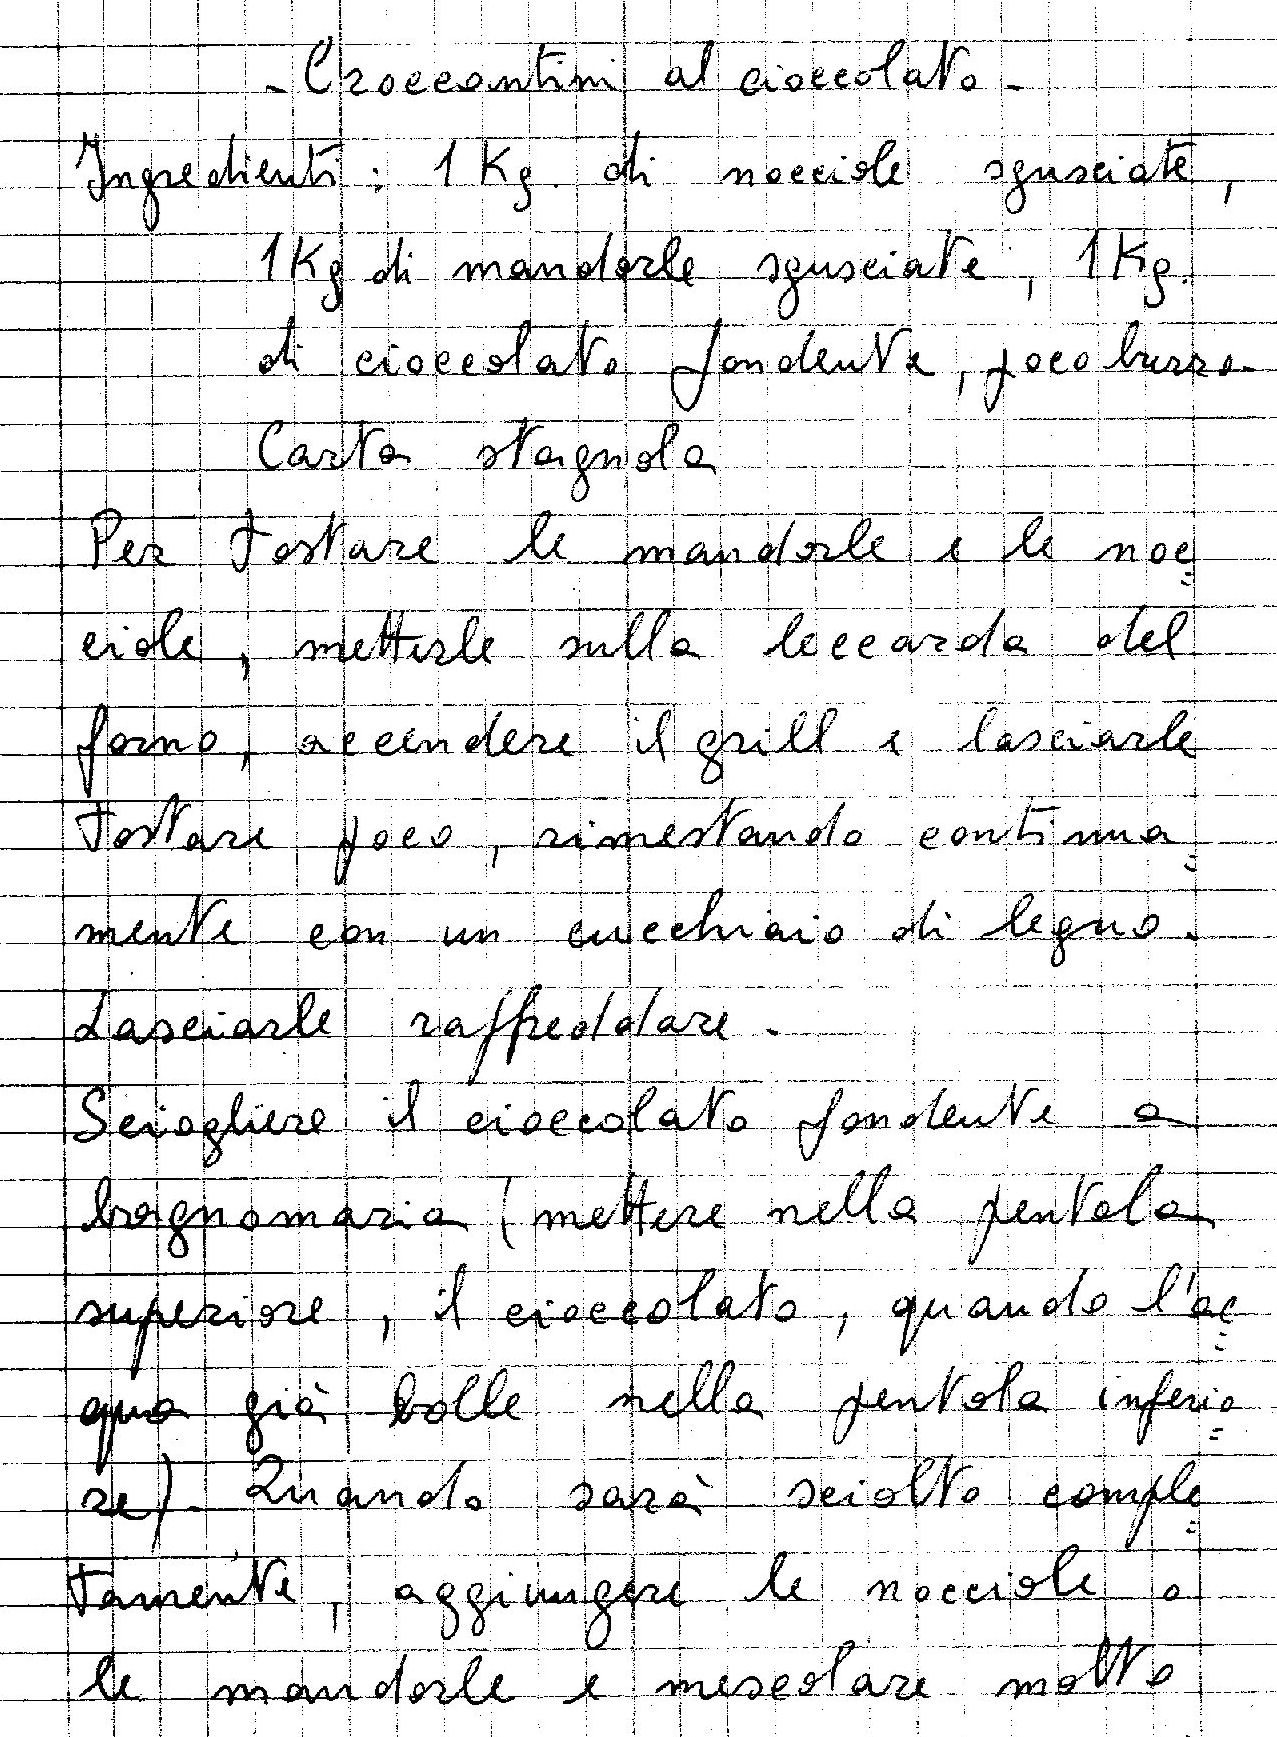 - Croccantini al cioccolato -
Ingredienti : 1 Kg. di nocciole sgusciate,
1 Kg di mandorle sgusciate, 1 Kg.
di cioccolato fondente, poco burro.
Carta stagnola
Per tostare le mandorle e le noc=
ciole, metterle sulla leccarda del
forno, accendere il grill e lasciarle
tostare poco, rimestando continua=
mente con un cucchiaio di legno.
Lasciarle raffreddare.
Sciogliere il cioccolato fondente a
bagnomaria (mettere nella pentola
superiore, il cioccolato, quando l'ac=
qua già bolle nella pentola inferio=
re). Quando sarà sciolto comple=
tamente, aggiungere le nocciole o
le mandorle e mescolare molto